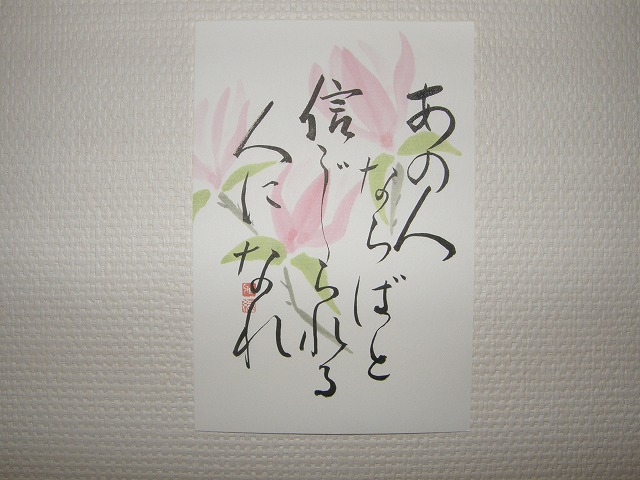 あの人
ならばと
信じられる
人になれ